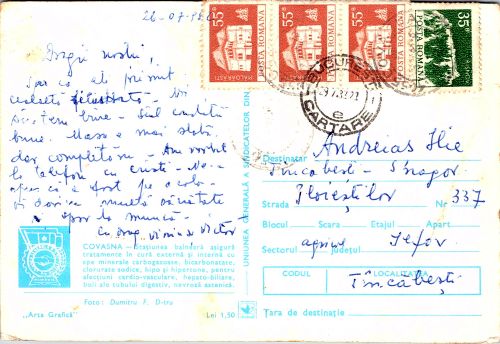 26-07-
Dragii noștri,
Sper că ați primit
bine - Sînt condiții
bune. Masa e mai slabă
dar completăm. Am vorbit
la telefon cu
a fost pe acolo
vă dorim multă sănătate
spor la muncă
Cu drag,
55B
POSTA ROMANA
55B
POSTA ROMANA
55B
POSTA ROMANA
35B
POSTA ROMANA
BUCUREȘTI
CARTARE
e
UNIUNEA GENERALĂ A SINDICATELOR DIN
Destinatar Andreias Ilie
Tîncăbești - Snagov
Strada Ploieștilor Nr 337
Blocul Scara Etajul Apart
Sectorul județul Ilfov
CODUL LOCALITATEA
Tîncăbești
Țara de destinație
COVASNA — Stațiunea balneară asigură
tratamente în cură externă și internă cu
ape minerale carbogazoase, bicarbonatate,
clorurate sodice, hipo și hipertone, pentru
afecțiuni cardio-vasculare, hepato-biliare,
boli ale tubului digestiv, nevroză astenică.
Foto: Dumitru F. D-tru
„Arta Grafică" Lei 1,50